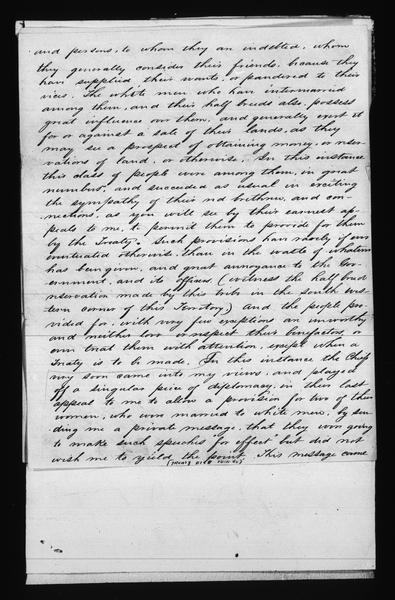 and persons, to whom they are indebted, whom
they generally consider their friends, because they
have supplied their wants, or pandered to their
vices. The white men who have intermarried
among them, and their half breeds also, possess
great influence over them, and generally exert it
for or against a sale of their lands, as they
may see a prospect of obtaining money, or reser-
vations of land, or otherwise. In this instance
this class of people were among them, in great
numbers, and succeeded as usual in exciting
the sympathy of their red brethren, and con-
nections, as you will see by their earnest ap-
peals to me, to permit them to provide for them
by the Treaty. Such provisions have rarely if ever
eventuated otherwise, than in the waste of whatever
has been given, and great annoyance to the Gov-
ernment, and its officers, (witness the half breed
reservation made by this tribe in the south eas-
tern corner of this Territory) And the people pro-
vided for, with very few exceptions are unworthy
and neither love or respect their benefactors, or
even treat them with attention, except when a
Treaty is to be made. In this instance the Chiefs
very soon came into my views, and played
off a singular piece of diplomacy, in their last
appeal to me to allow a provision for two of their
women, who were married to white men, by sen-
ding me a private message, that they were going
to make such speeches "for effect" but did not
wish me to yield the point. This message came